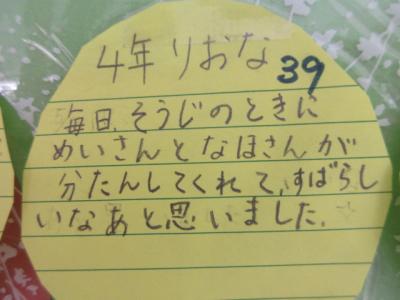 4年 りおな 39
毎日、そうじのときに
めいさんとなほさんが
分たんしてくれて、すばらし
いなあと思いました。